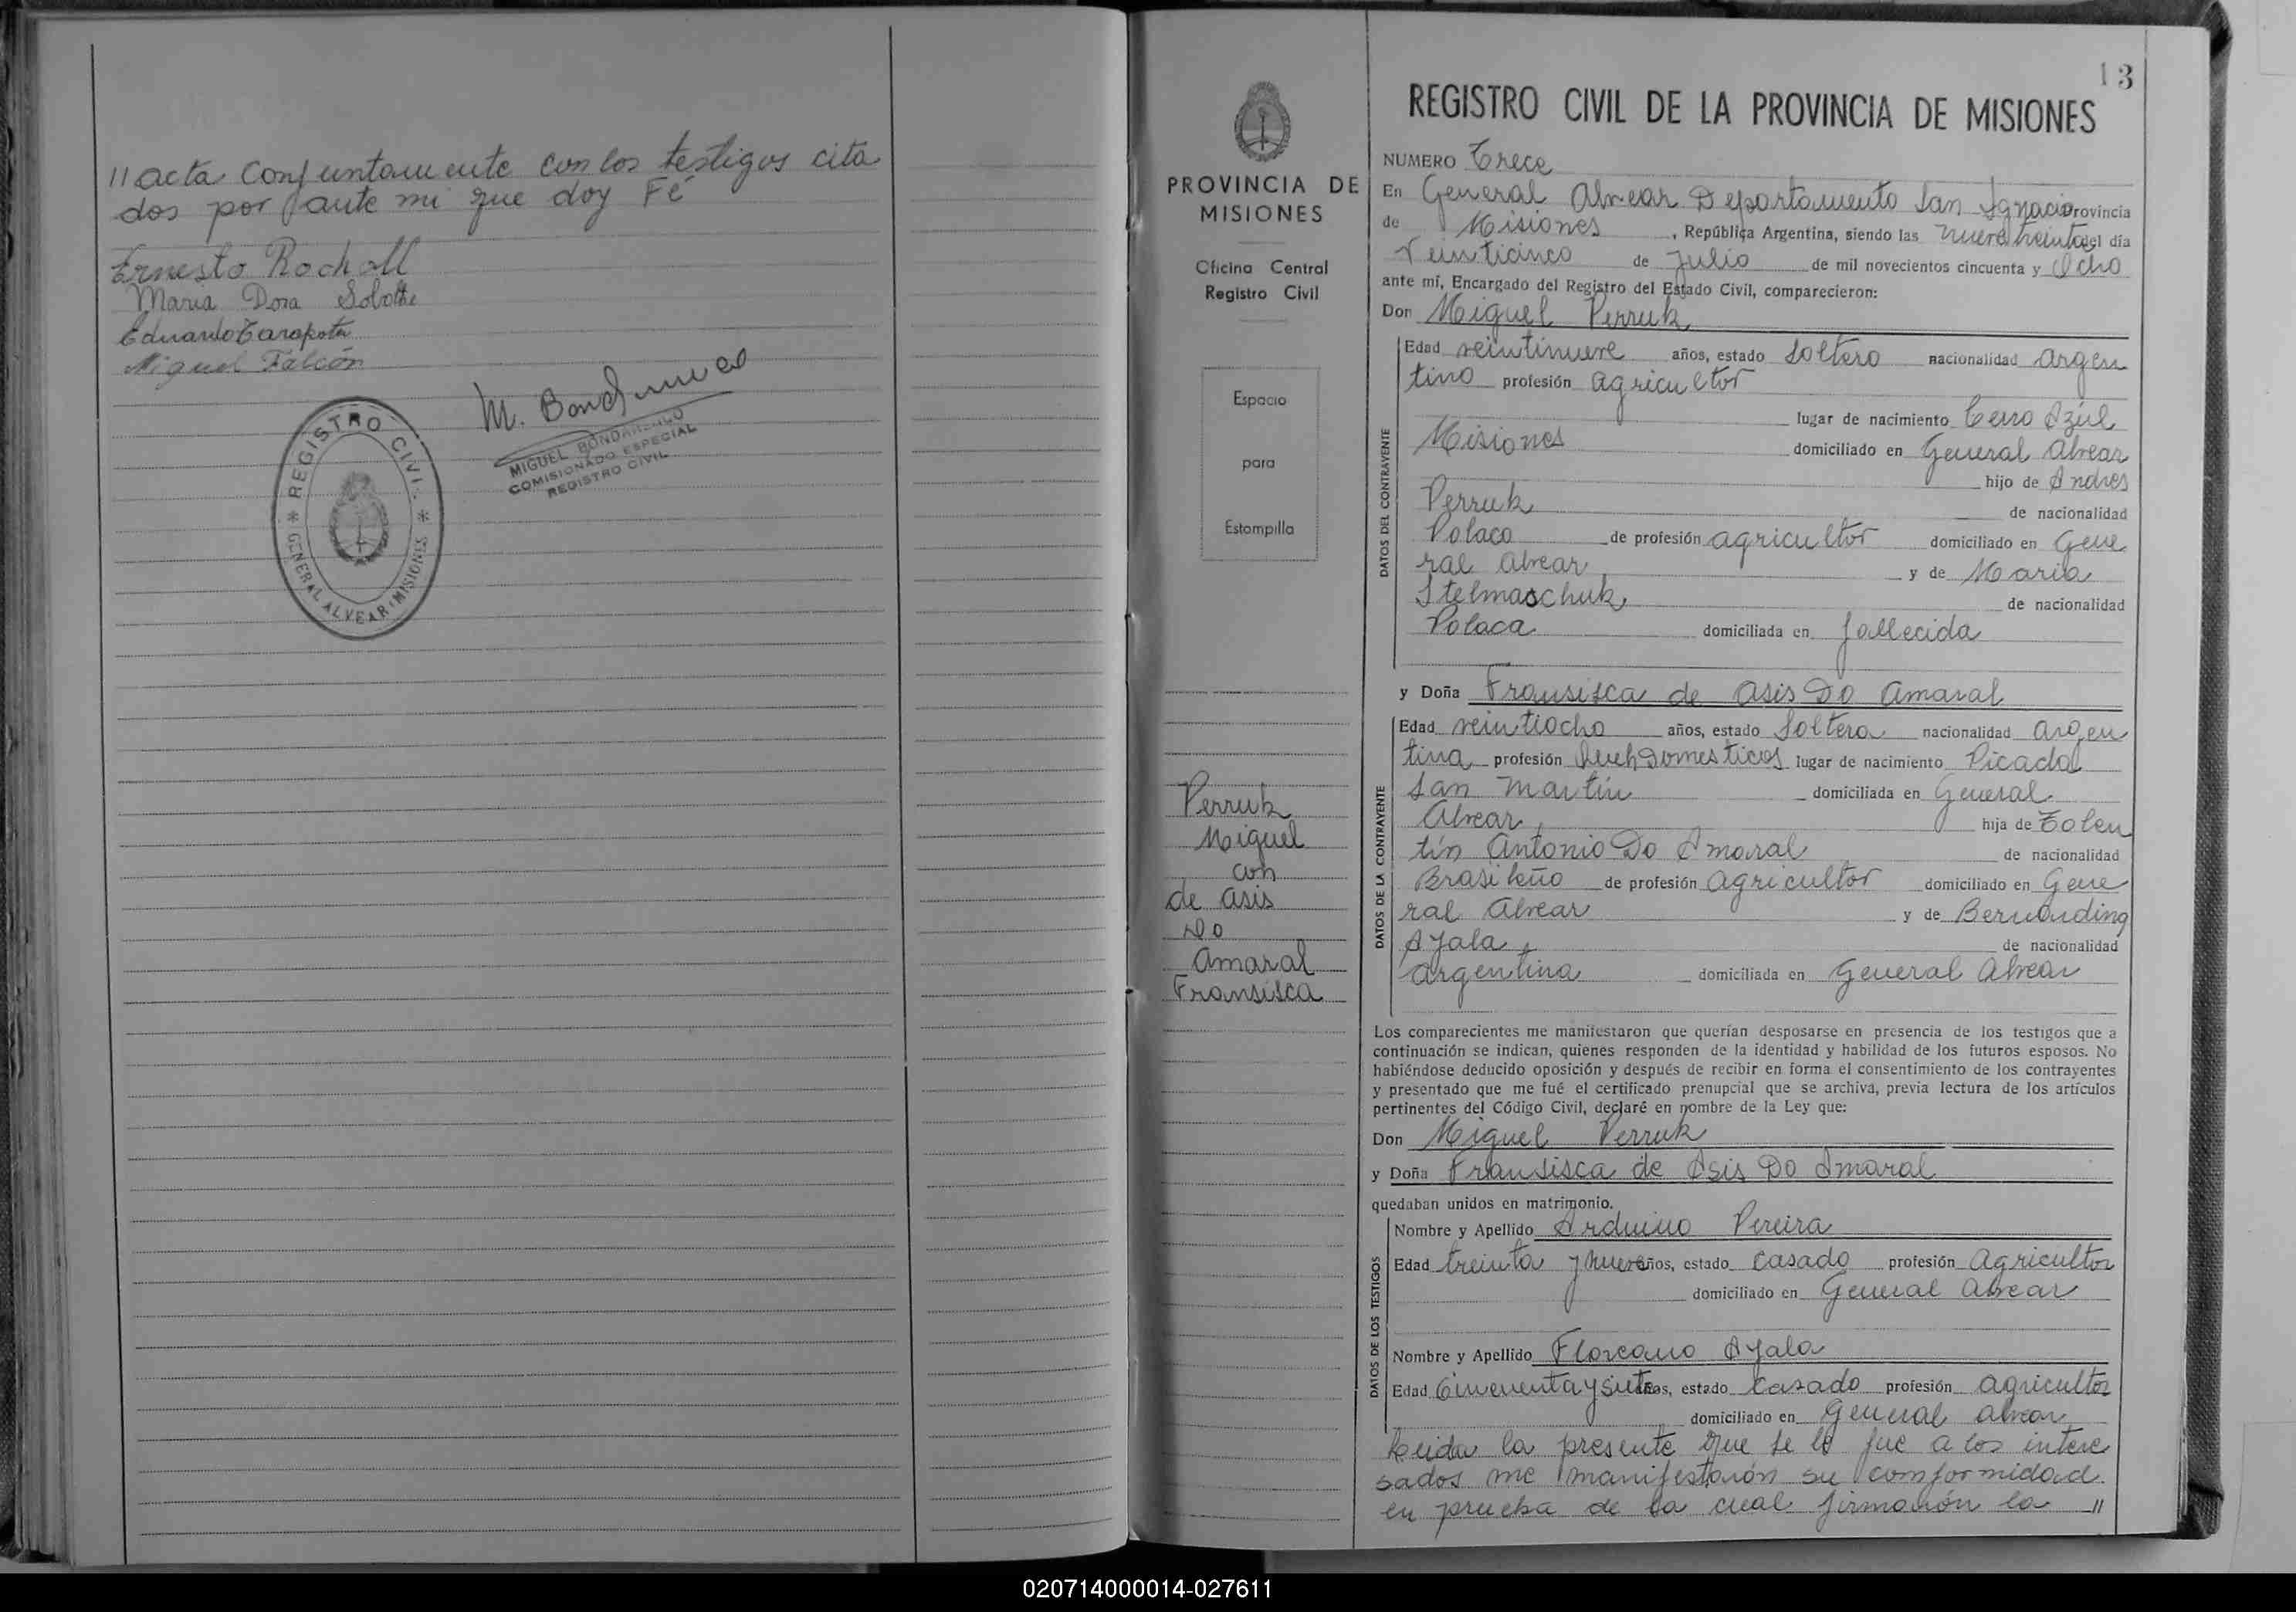 //acta conjuntamente con los testigos cita
dos por ante mi que doy Fé
Ernesto Rochall
Maria Dora Sobothe
Eduardo
Miguel Falcón
M.
REGISTRO CIVIL
* GENERAL ALVEAR - MISIONES *
MIGUEL BONDARENCO
COMISIONADO ESPECIAL
REGISTRO CIVIL
PROVINCIA DE
MISIONES
Oficina Central
Registro Civil
Espacio
para
Estampilla
Perruk
Miguel
con
de Asis
Do
Amaral
Fransisca
13
REGISTRO CIVIL DE LA PROVINCIA DE MISIONES
NUMERO Trece
En General Alvear Departamento San Ignacio Provincia
de Misiones, República Argentina, siendo las nueve treinta del día
Veinticinco de Julio de mil novecientos cincuenta y Ocho
ante mí, Encargado del Registro del Estado Civil, comparecieron:
Don Miguel Perruk
DATOS DEL CONTRAYENTE
Edad veintinueve años, estado Soltero nacionalidad argen
tino profesión agricultor
lugar de nacimiento Cerro Azúl
Misiones domiciliado en General Alvear
hijo de Andres
Perruk de nacionalidad
Polaco de profesión agricultor domiciliado en Gene
ral Alvear y de Maria
Stelmaschuk de nacionalidad
Polaca domiciliada en fallecida
y Doña Fransisca de Asis Do Amaral
DATOS DE LA CONTRAYENTE
Edad veintiocho años, estado Soltera nacionalidad argen
tina profesión Quehdomesticos lugar de nacimiento Picada
San Martín domiciliada en General
Alvear hija de Tolen
tín Antonio Do Amaral de nacionalidad
Brasileño de profesión agricultor domiciliado en Gene
ral Alvear y de Bernanding
Ayala de nacionalidad
argentina domiciliada en General Alvear
Los comparecientes me manifestaron que querían desposarse en presencia de los testigos que a
continuación se indican, quienes responden de la identidad y habilidad de los futuros esposos. No
habiéndose deducido oposición y después de recibir en forma el consentimiento de los contrayentes
y presentado que me fué el certificado prenupcial que se archiva, previa lectura de los artículos
pertinentes del Código Civil, declaré en nombre de la Ley que:
Don Miguel Perruk
y Doña Fransisca de Asis Do Amaral
quedaban unidos en matrimonio.
DATOS DE LOS TESTIGOS
Nombre y Apellido Arduino Pereira
Edad treinta y nueve años, estado casado profesión agricultor
domiciliado en General Alvear
Nombre y Apellido Floreano Ayala
Edad Cincuenta y siete años, estado Casado profesión agricultor
domiciliado en General Alvear
Leida la presente que se le fue a los intere
sados me manifestarón su conformidad
en prueba de la cual firmarón la //
020714000014-027611